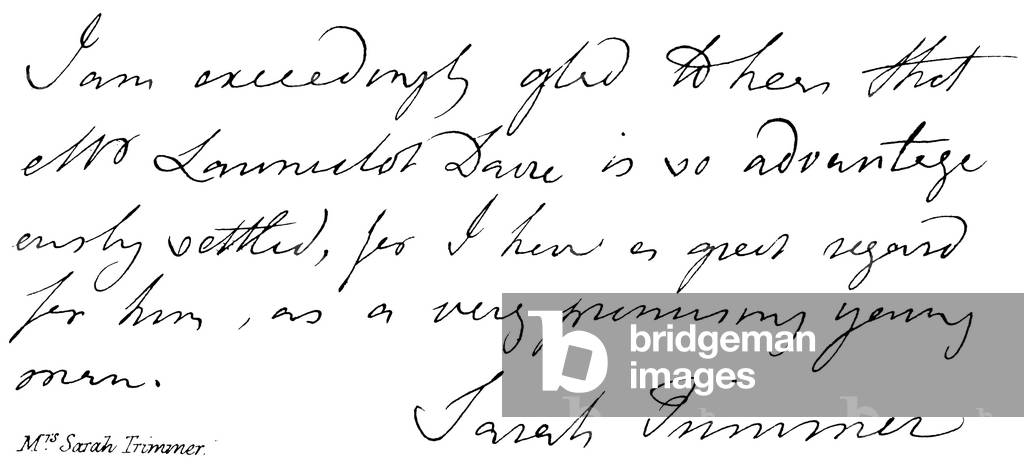 I am exceedingly glad to hear that
Mr Launcelot Davie is so advantage
ously settled, for I have a great regard
for him, as a very promising young
man.
Sarah Trimmer
Mrs Sarah Trimmer.
b bridgeman
images